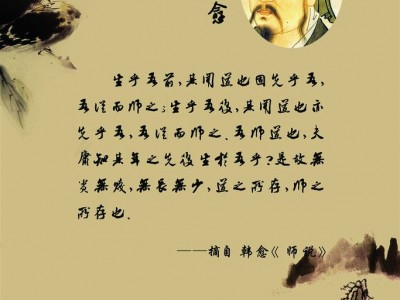 愈
生乎吾前,其闻道也固先乎吾,
吾從而师之;生乎吾後,其闻道也亦
先乎吾,吾從而师之.吾师道也,夫
庸知其年之先後生於吾乎?是故無
贵無贱,無長無少,道之所存,师之
所存也.
——摘自 韩愈《师说》